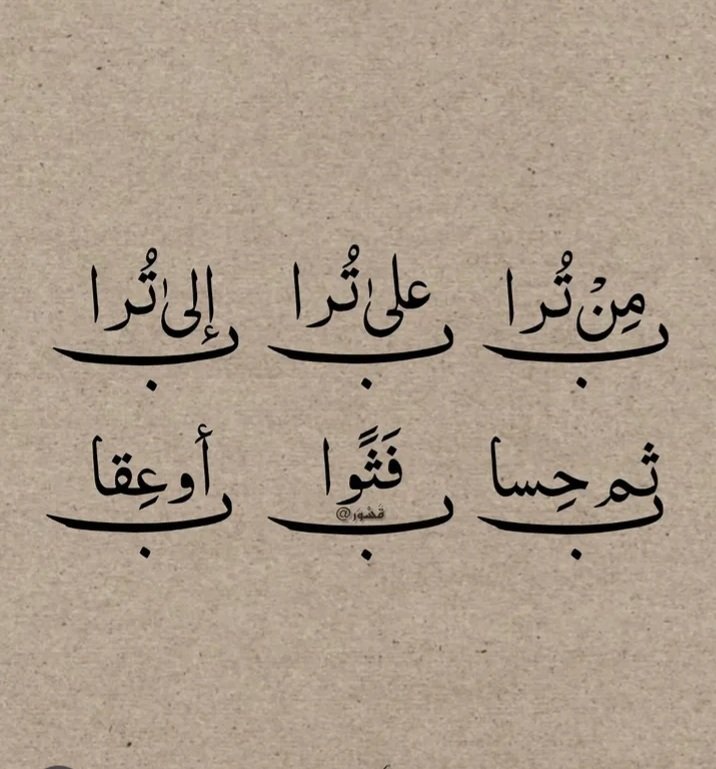 مِنْ تُراب علىٰ تُراب إلىٰ تُراب
ثم حِساب فَثَوًاب أو عِقاب
@قشور